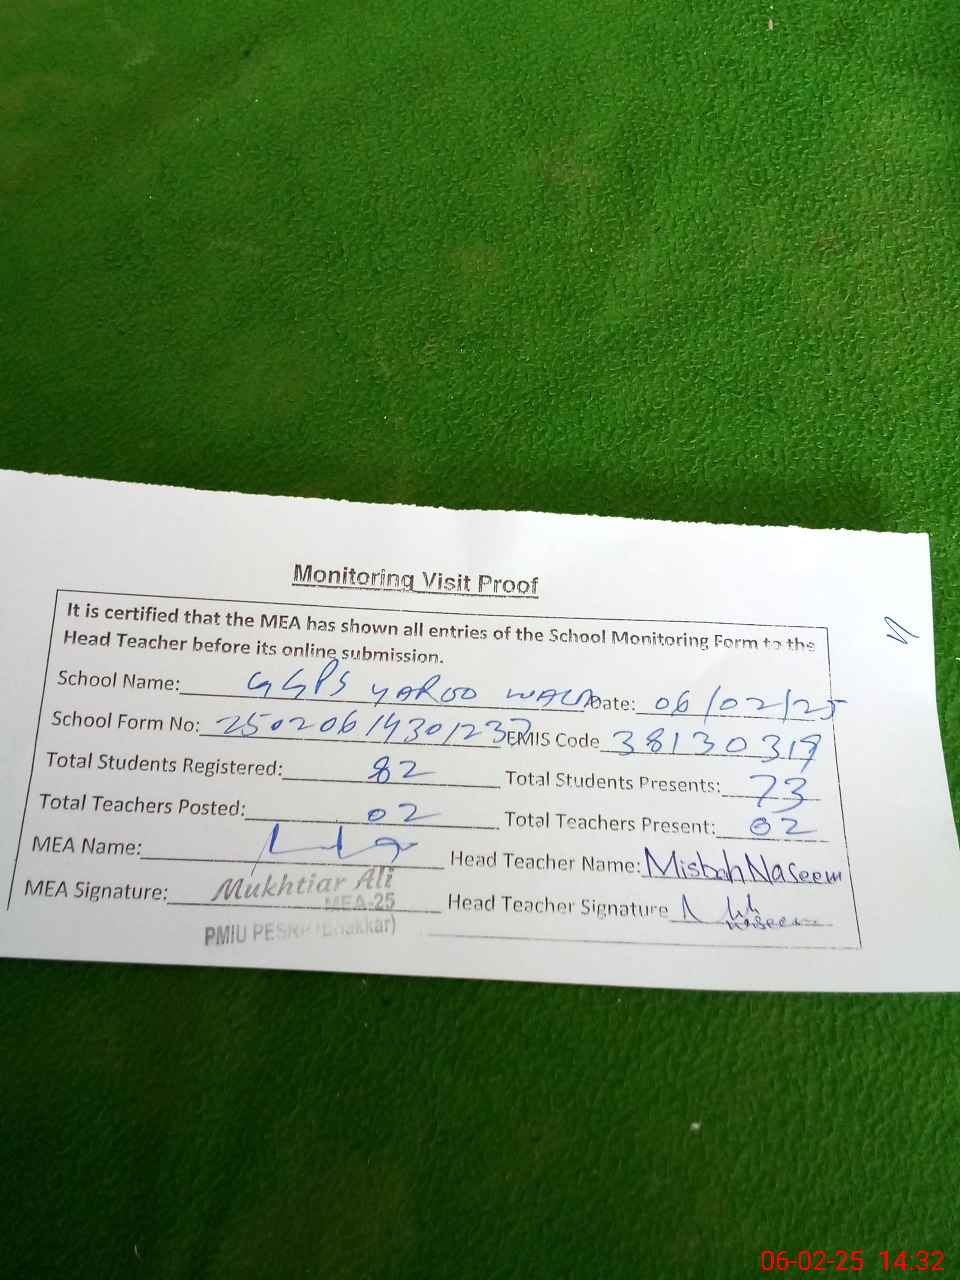 Monitoring Visit Proof
It is certified that the MEA has shown all entries of the School Monitoring Form to the
Head Teacher before its online submission.
School Name: GGPS YAROO WALA Date: 06/02/25
School Form No: 25020614301237 EMIS Code 38130319
Total Students Registered: 82 Total Students Presents: 73
Total Teachers Posted: 02 Total Teachers Present: 02
MEA Name: Head Teacher Name: Misbah Naseem
MEA Signature: Mukhtiar Ali Head Teacher Signature Naseem
MEA-25
PMIU PESRP (Bhakkar)
06-02-25 14:32